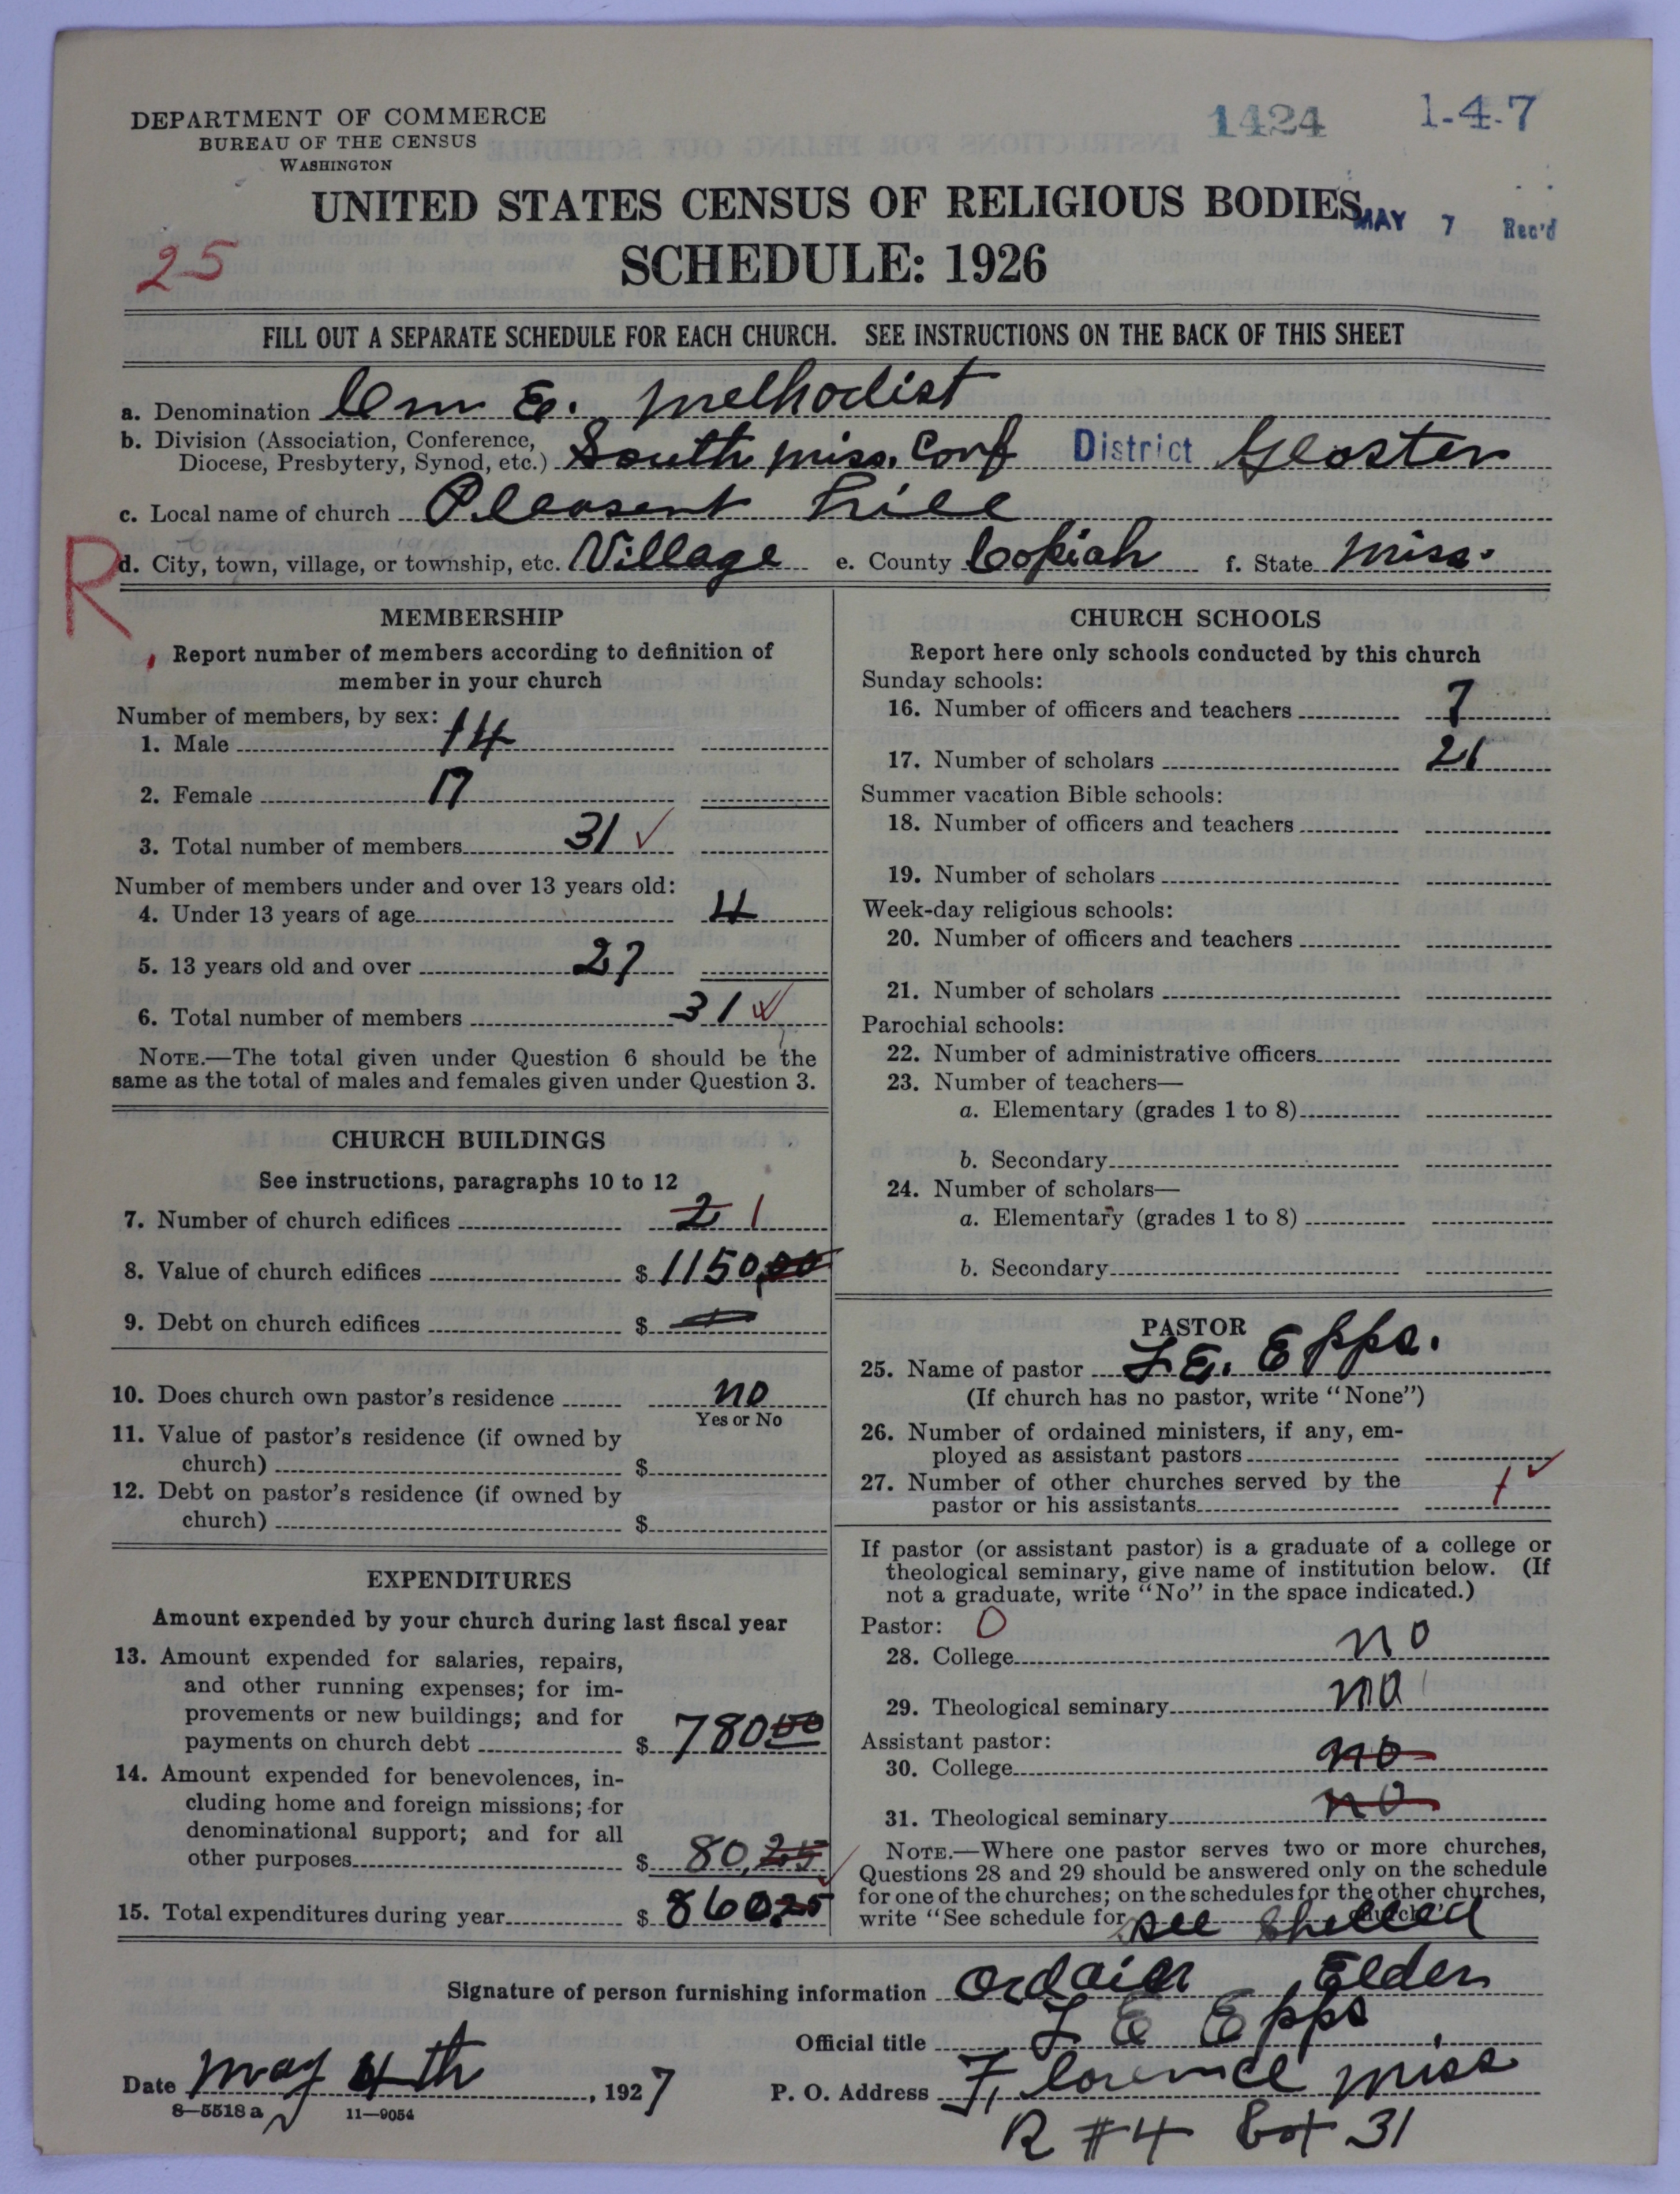 DEPARTMENT OF COMMERCE
BUREAU OF THE CENSUS
WASHINGTON
1424
1-4-7
UNITED STATES CENSUS OF RELIGIOUS BODIES
MAY 7 Rec'd
25
SCHEDULE: 1926
FILL OUT A SEPARATE SCHEDULE FOR EACH CHURCH. SEE INSTRUCTIONS ON THE BACK OF THIS SHEET
a. Denomination Cm E. Methodist
b. Division (Association, Conference,
Diocese, Presbytery, Synod, etc.) South Miss. Conf District Gloster
c. Local name of church Pleasent Hill
R
d. City, town, village, or township, etc. Village e. County Copiah f. State Miss.
MEMBERSHIP
Report number of members according to definition of
member in your church
Number of members, by sex:
1. Male 14
2. Female 17
3. Total number of members 31 ✓
Number of members under and over 13 years old:
4. Under 13 years of age 4
5. 13 years old and over 27
6. Total number of members 31 ✓
NOTE.—The total given under Question 6 should be the
same as the total of males and females given under Question 3.
CHURCH BUILDINGS
See instructions, paragraphs 10 to 12
7. Number of church edifices 2 1
8. Value of church edifices $ 1150,00
9. Debt on church edifices $
10. Does church own pastor's residence no
Yes or No
11. Value of pastor's residence (if owned by
church) $
12. Debt on pastor's residence (if owned by
church) $
EXPENDITURES
Amount expended by your church during last fiscal year
13. Amount expended for salaries, repairs,
and other running expenses; for im-
provements or new buildings; and for
payments on church debt $ 780 00
14. Amount expended for benevolences, in-
cluding home and foreign missions; for
denominational support; and for all
other purposes $ 80,25
15. Total expenditures during year $ 860.25
CHURCH SCHOOLS
Report here only schools conducted by this church
Sunday schools:
16. Number of officers and teachers 7
17. Number of scholars 21
Summer vacation Bible schools:
18. Number of officers and teachers
19. Number of scholars
Week-day religious schools:
20. Number of officers and teachers
21. Number of scholars
Parochial schools:
22. Number of administrative officers
23. Number of teachers—
a. Elementary (grades 1 to 8)
b. Secondary
24. Number of scholars—
a. Elementary (grades 1 to 8)
b. Secondary
PASTOR
25. Name of pastor L E. Epps.
(If church has no pastor, write "None")
26. Number of ordained ministers, if any, em-
ployed as assistant pastors
27. Number of other churches served by the
pastor or his assistants 1 ✓
If pastor (or assistant pastor) is a graduate of a college or
theological seminary, give name of institution below. (If
not a graduate, write "No" in the space indicated.)
Pastor: 0
28. College no
29. Theological seminary no
Assistant pastor:
30. College no
31. Theological seminary no
NOTE.—Where one pastor serves two or more churches,
Questions 28 and 29 should be answered only on the schedule
for one of the churches; on the schedules for the other churches,
write "See schedule for church." see
Signature of person furnishing information Ordain Elder
Official title L E Epps
Date May 4th, 1927 P. O. Address Florence Miss
8—5518 a 11—9054
R #4 Box 31